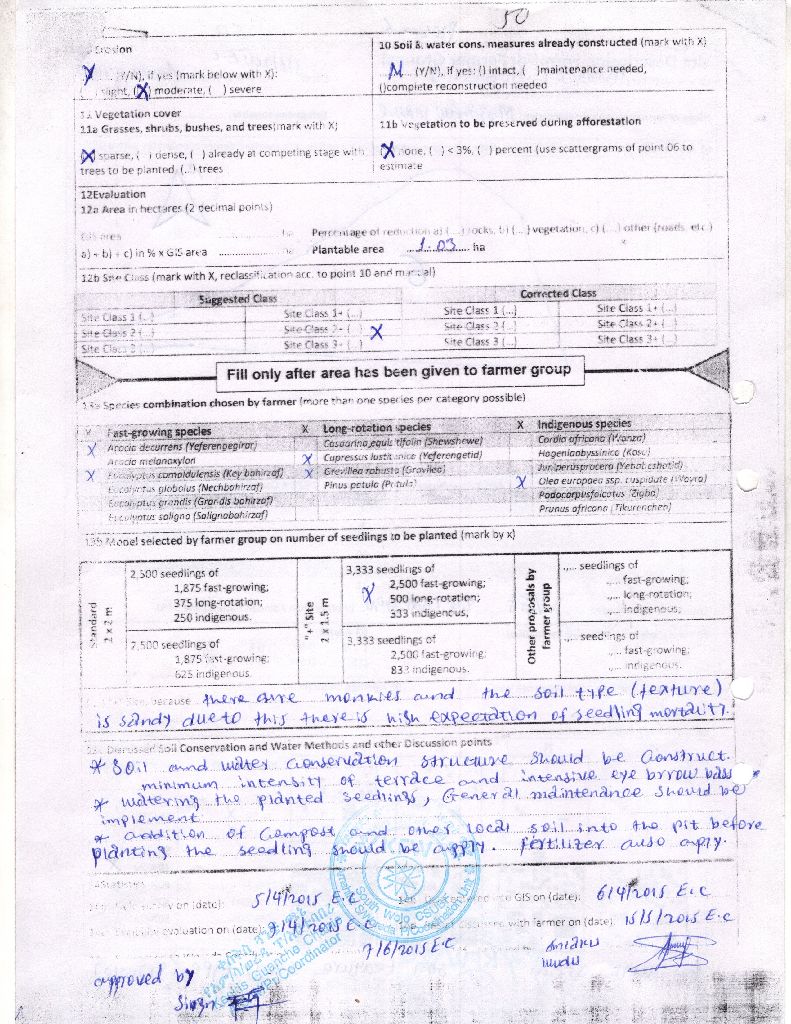 50
Erosion
10 Soil & water cons. measures already constructed (mark with X)
Y (Y/N), if yes (mark below with X):
N... (Y/N), if yes: () intact, ( )maintenance needed,
slight, (X) moderate, ( ) severe
()complete reconstruction needed
Vegetation cover
11a Grasses, shrubs, bushes, and trees(mark with X)
11b Vegetation to be preserved during afforestation
(X) sparse, ( ) dense, ( ) already at competing stage with
(X) none, ( ) < 3%, ( ) percent (use scattergrams of point 06 to
trees to be planted, (...) trees
estimate
12Evaluation
12a Area in hectares (2 decimal points)
GIS area ha Percentage of reduction a) (...) rocks, b) (...) vegetation, c) (...) other (roads, etc.)
a) + b) + c) in % x GIS area ha Plantable area ....1.03.... ha
12b Site Class (mark with X, reclassification acc. to point 10 and manual)
Suggested Class Corrected Class
Site Class 1 (...) Site Class 1+ (...) Site Class 1 (...) Site Class 1+ (...)
Site Class 2 (...) Site Class 2+ ( ) X Site Class 2 (...) Site Class 2+ (...)
Site Class 3 (...) Site Class 3+ (...) Site Class 3 (...) Site Class 3+ (...)
Fill only after area has been given to farmer group
13a Species combination chosen by farmer (more than one species per category possible)
X Fast-growing species X Long-rotation species X Indigenous species
X Acacia decurrens (Yeferengegirar) Casuarina equisitifolin (Shewshewe) Cordia africana (Wanza)
Acacia melanoxylon X Cupressus lusitanica (Yeferengetid) Hageniaabyssinica (Kosu)
X Eucalyptus camaldulensis (Key bahirzaf) X Grevillea robusta (Gravilea) Juniperusprocera (Yehabeshatid)
Eucalyptus globolus (Nechbahirzaf) Pinus patula (Patula) X Olea europaea ssp. cuspidate (Woyra)
Eucalyptus grandis (Grandis bahirzaf) Podocarpusfalcatus (Zigba)
Eucalyptus saligna (Salignabahirzaf) Prunus africana (Tikurenchen)
13b Model selected by farmer group on number of seedlings to be planted (mark by x)
Standard
2 x 2 m
2,500 seedlings of
1,875 fast-growing;
375 long-rotation;
250 indigenous.
2,500 seedlings of
1,875 fast-growing;
625 indigenous.
"+" Site
2 x 1.5 m
3,333 seedlings of
X 2,500 fast-growing;
500 long-rotation;
333 indigenous.
3,333 seedlings of
2,500 fast-growing;
833 indigenous.
Other proposals by
farmer group
..... seedlings of
..... fast-growing;
..... long-rotation;
..... indigenous;
..... seedlings of
..... fast-growing;
..... indigenous.
because there are monkies and the soil type (texture)
is sandy due to this there is high expectation of seedling mortality.
Discussed Soil Conservation and Water Methods and other Discussion points
* Soil and water conservation structure should be construct.
minimum intensity of terrace and intensive eye brrow bass
* watering the planted seedlings, General maintenance should be
implement
* addition of compost and other local soil into the pit before
planting the seedling should be apply. fertilizer also apply.
Statistics
survey on (date): 5/4/2015 E.C GIS on (date): 6/4/2015 E.C
evaluation on (date): 7/4/2015 E.C discussed with farmer on (date): 15/5/2015 E.C
7/6/2015 E.C
approved by
Sign
South Wolo
Coordinator